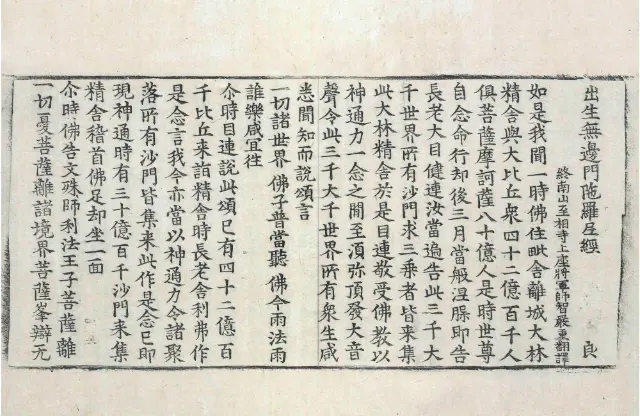 出生無邊門陁羅尼經　良
終南山至相寺上座將軍師智嚴重翻譯
如是我聞一時佛住毗舍離城大林
精舍與大比丘眾四十二億百千人
俱菩薩摩訶薩八十億人是時世尊
自念命行却後三月當般涅槃即告
長老大目健連汝當遍告此三千大
千世界所有沙門求三乘者皆来集
此大林精舍於是目連敬受佛教以
神通力一念之間至湏弥頂發大音
聲令此三千大千世界所有眾生咸
悉聞知而說頌言
一切諸世界　佛子普當聽　佛今雨法雨
誰樂咸宜往
尒時目連說此頌已有四十二億百
千比丘来詣精舍時長老舍利佛作
是念言我今亦當以神通力令諸聚
落所有沙門皆集来此作是念已即
現神通時有三十億百千沙門来集
精舍稽首佛足却坐一面
尒時佛告文殊師利法王子菩薩離
一切憂菩薩離諸境界菩薩峯辯无